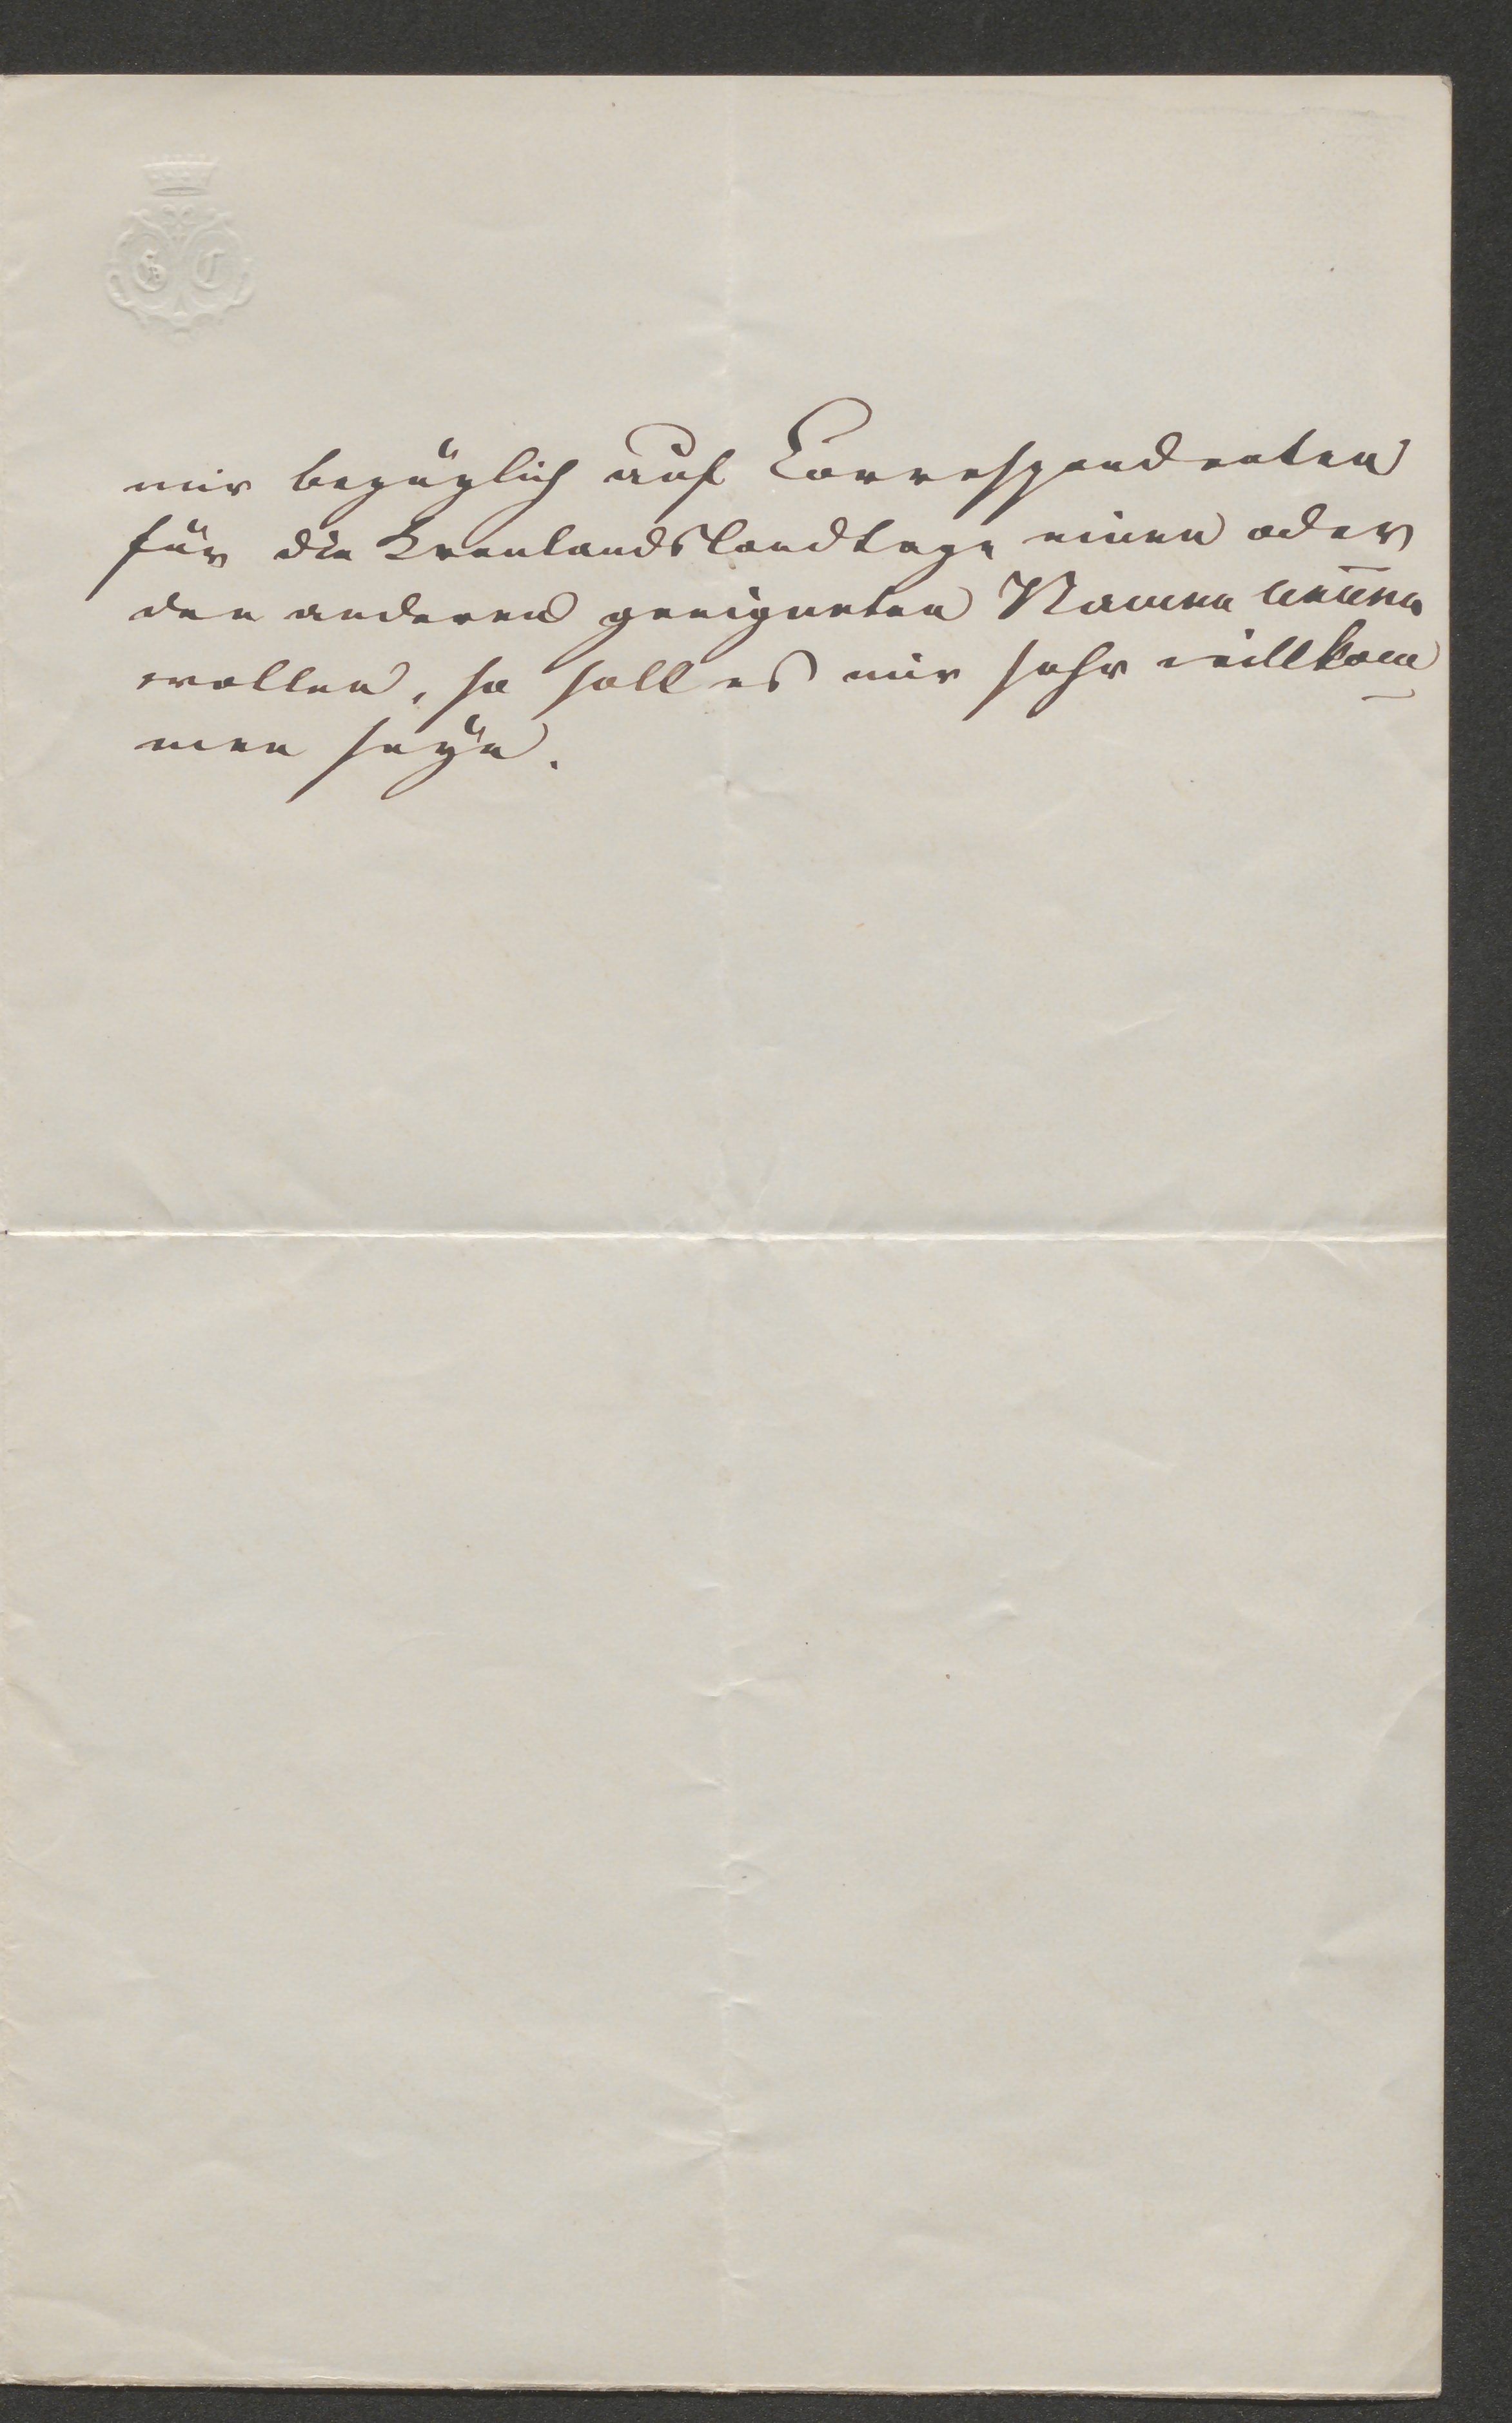 mir bezüglich auf Correspondenten
für die Kronlandslandtage einen oder
den anderen geeigneten Namen nen̄en
wollen, so soll es mir sehr willkom
men seÿn.